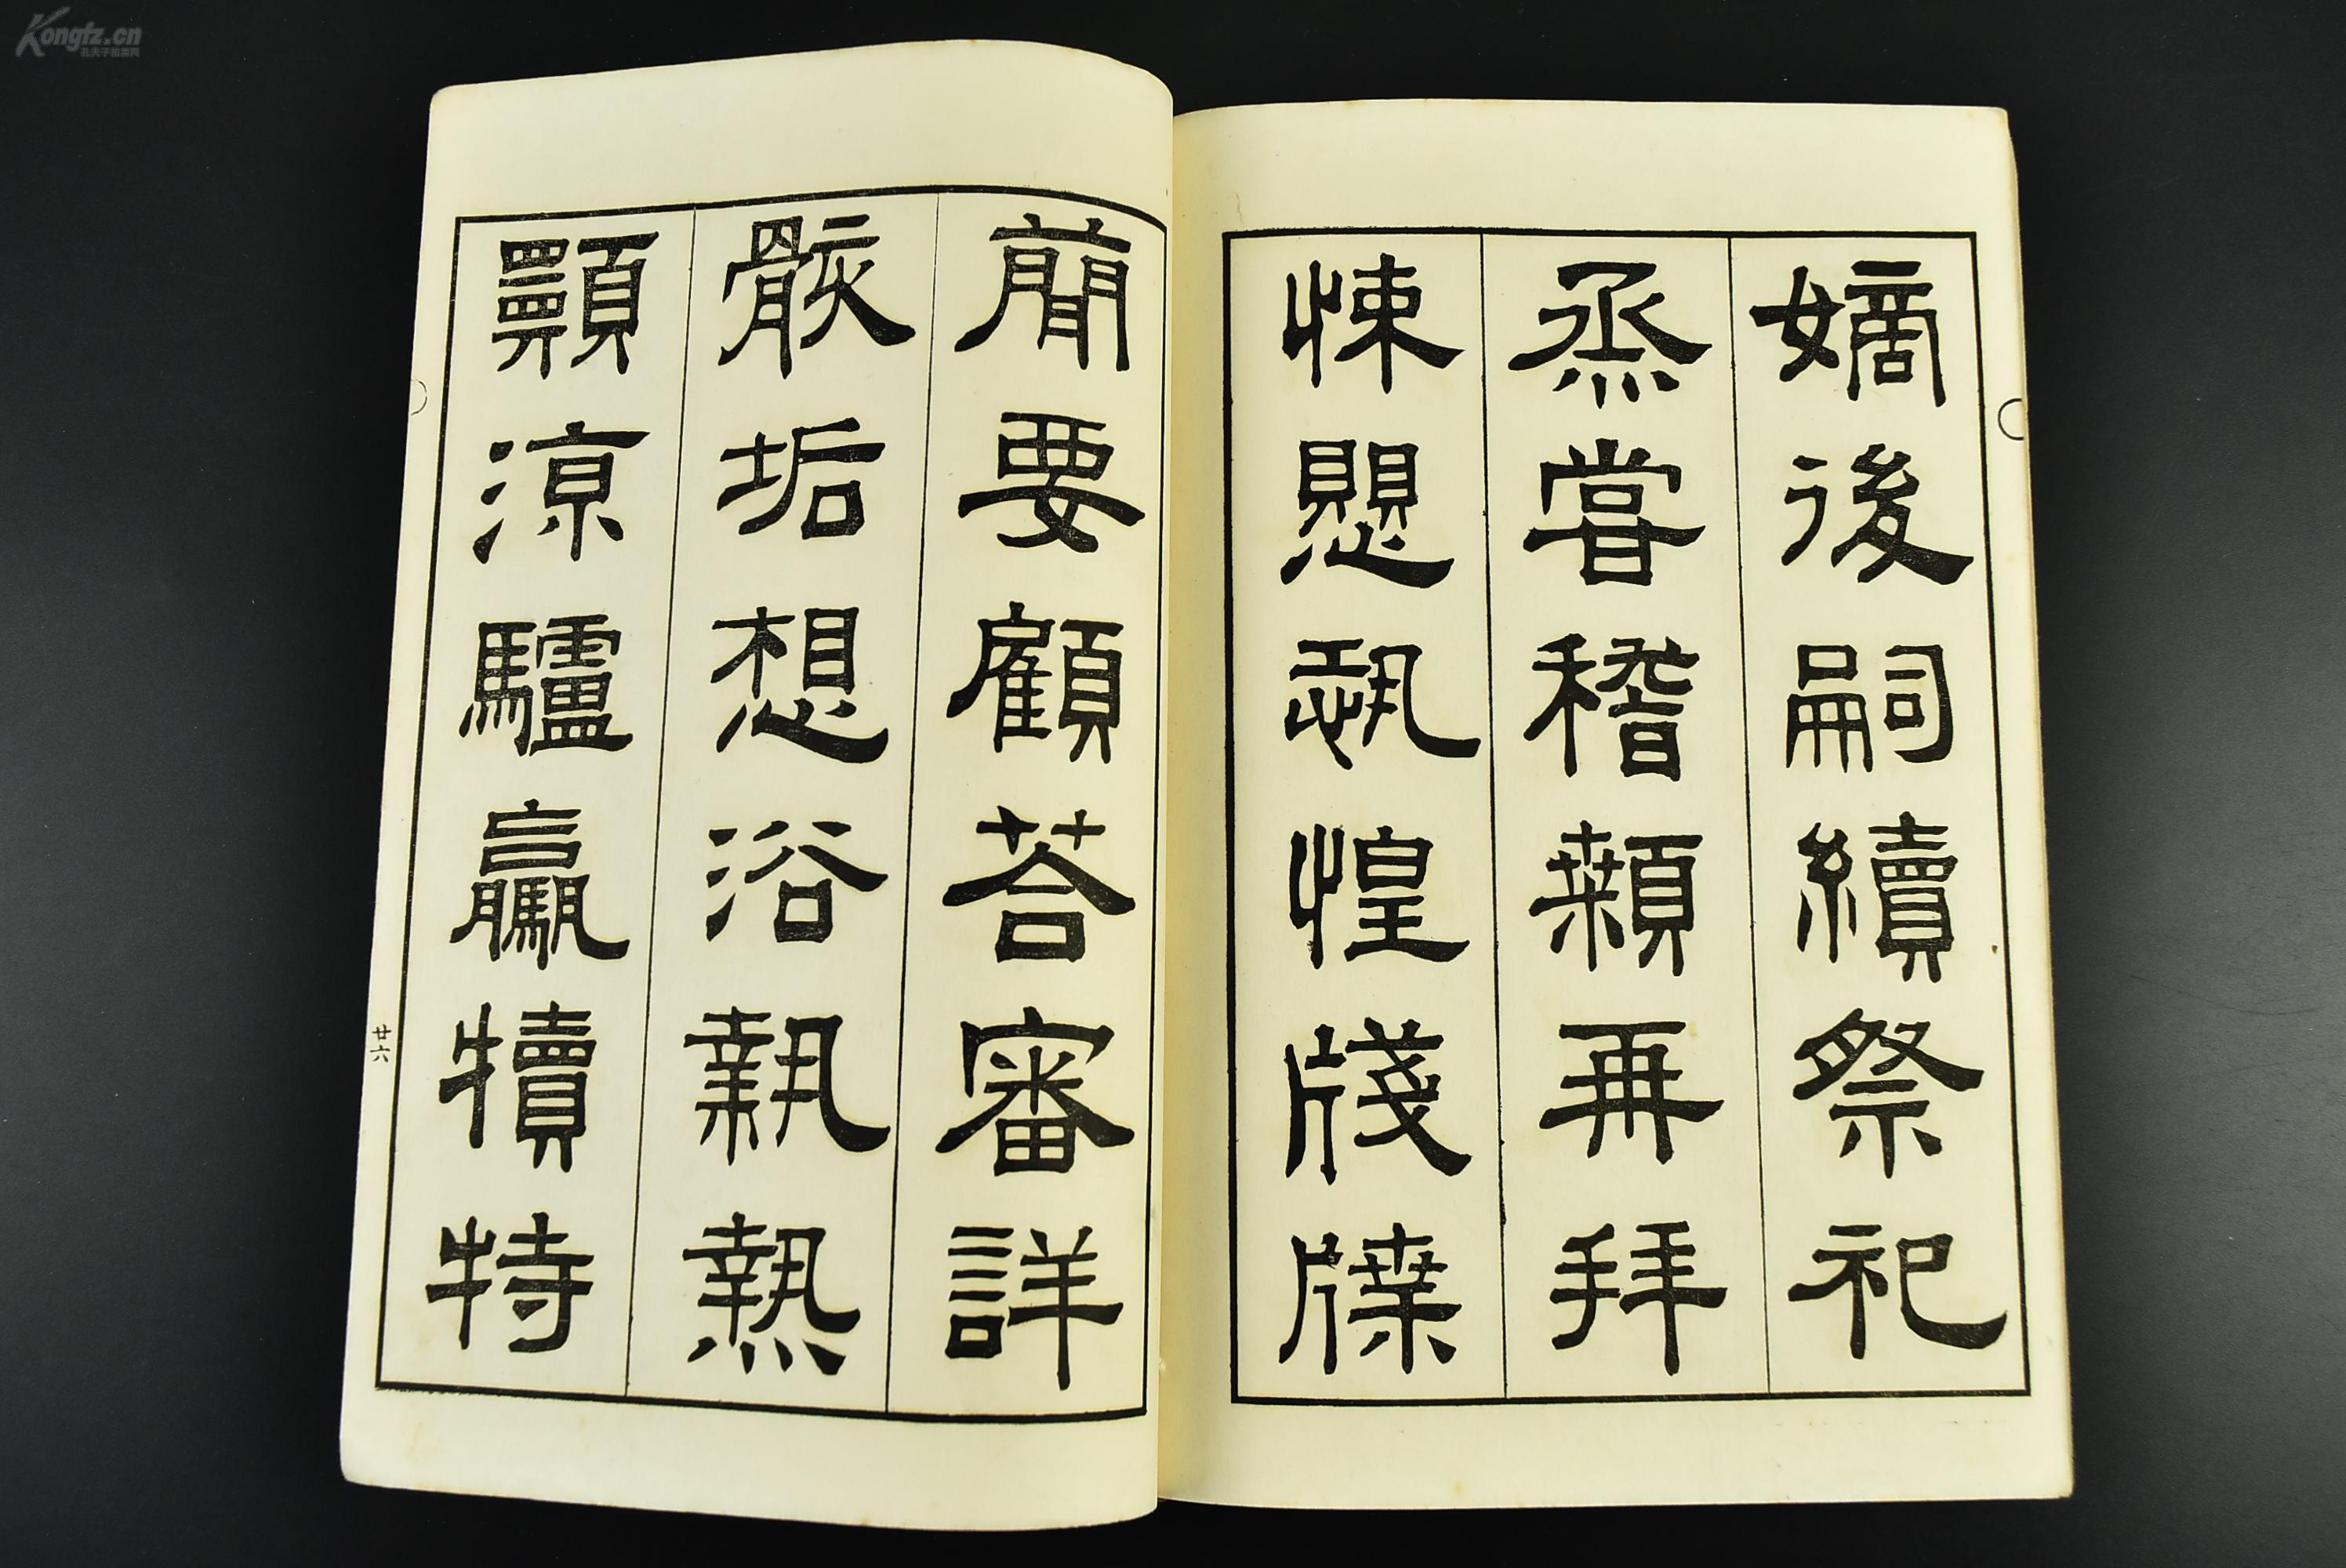 嫡後嗣續祭祀
烝嘗稽顙再拜
悚愳恐惶牋牒
蕑要顧荅審詳
骸垢想浴執熱
願涼驢驘犢特
廿六
Kongfz.cn
孔夫子拍卖网